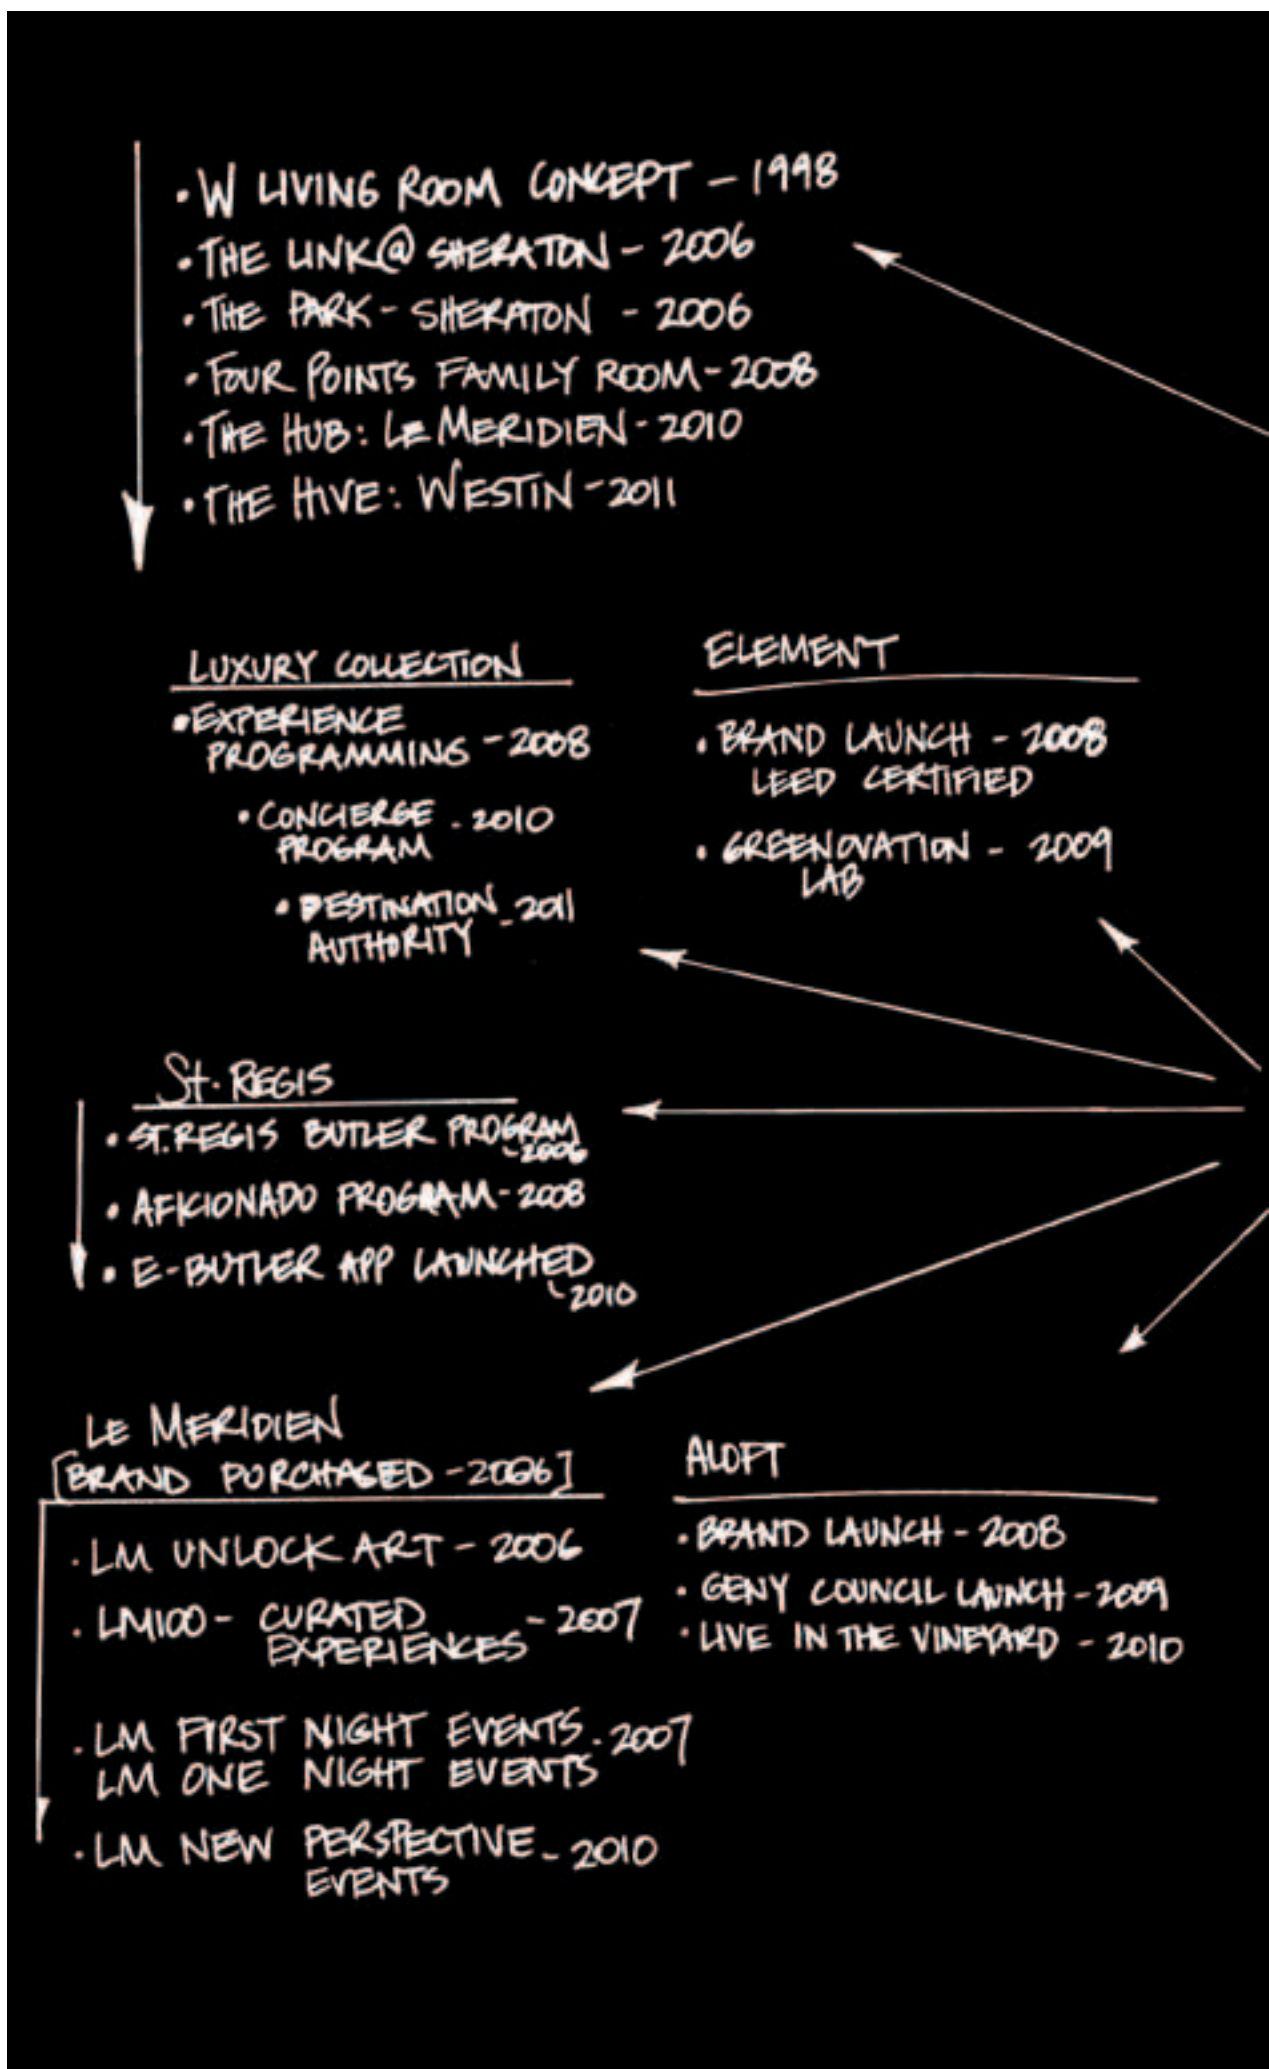 • W LIVING ROOM CONCEPT - 1998
• THE LINK@ SHERATON - 2006
• THE PARK - SHERATON - 2006
• FOUR POINTS FAMILY ROOM - 2008
• THE HUB: LE MERIDIEN - 2010
• THE HIVE: WESTIN - 2011
LUXURY COLLECTION
• EXPERIENCE
PROGRAMMING - 2008
• CONCIERGE - 2010
PROGRAM
• DESTINATION - 2011
AUTHORITY
ELEMENT
• BRAND LAUNCH - 2008
LEED CERTIFIED
• GREENOVATION - 2009
LAB
St. REGIS
• ST. REGIS BUTLER PROGRAM
- 2006
• AFICIONADO PROGRAM - 2008
• E-BUTLER APP LAUNCHED
- 2010
LE MERIDIEN
[BRAND PURCHASED - 2006]
• LM UNLOCK ART - 2006
• LM100 - CURATED - 2007
EXPERIENCES
• LM FIRST NIGHT EVENTS - 2007
LM ONE NIGHT EVENTS
• LM NEW PERSPECTIVE - 2010
EVENTS
ALOFT
• BRAND LAUNCH - 2008
• GENY COUNCIL LAUNCH - 2009
• LIVE IN THE VINEYARD - 2010